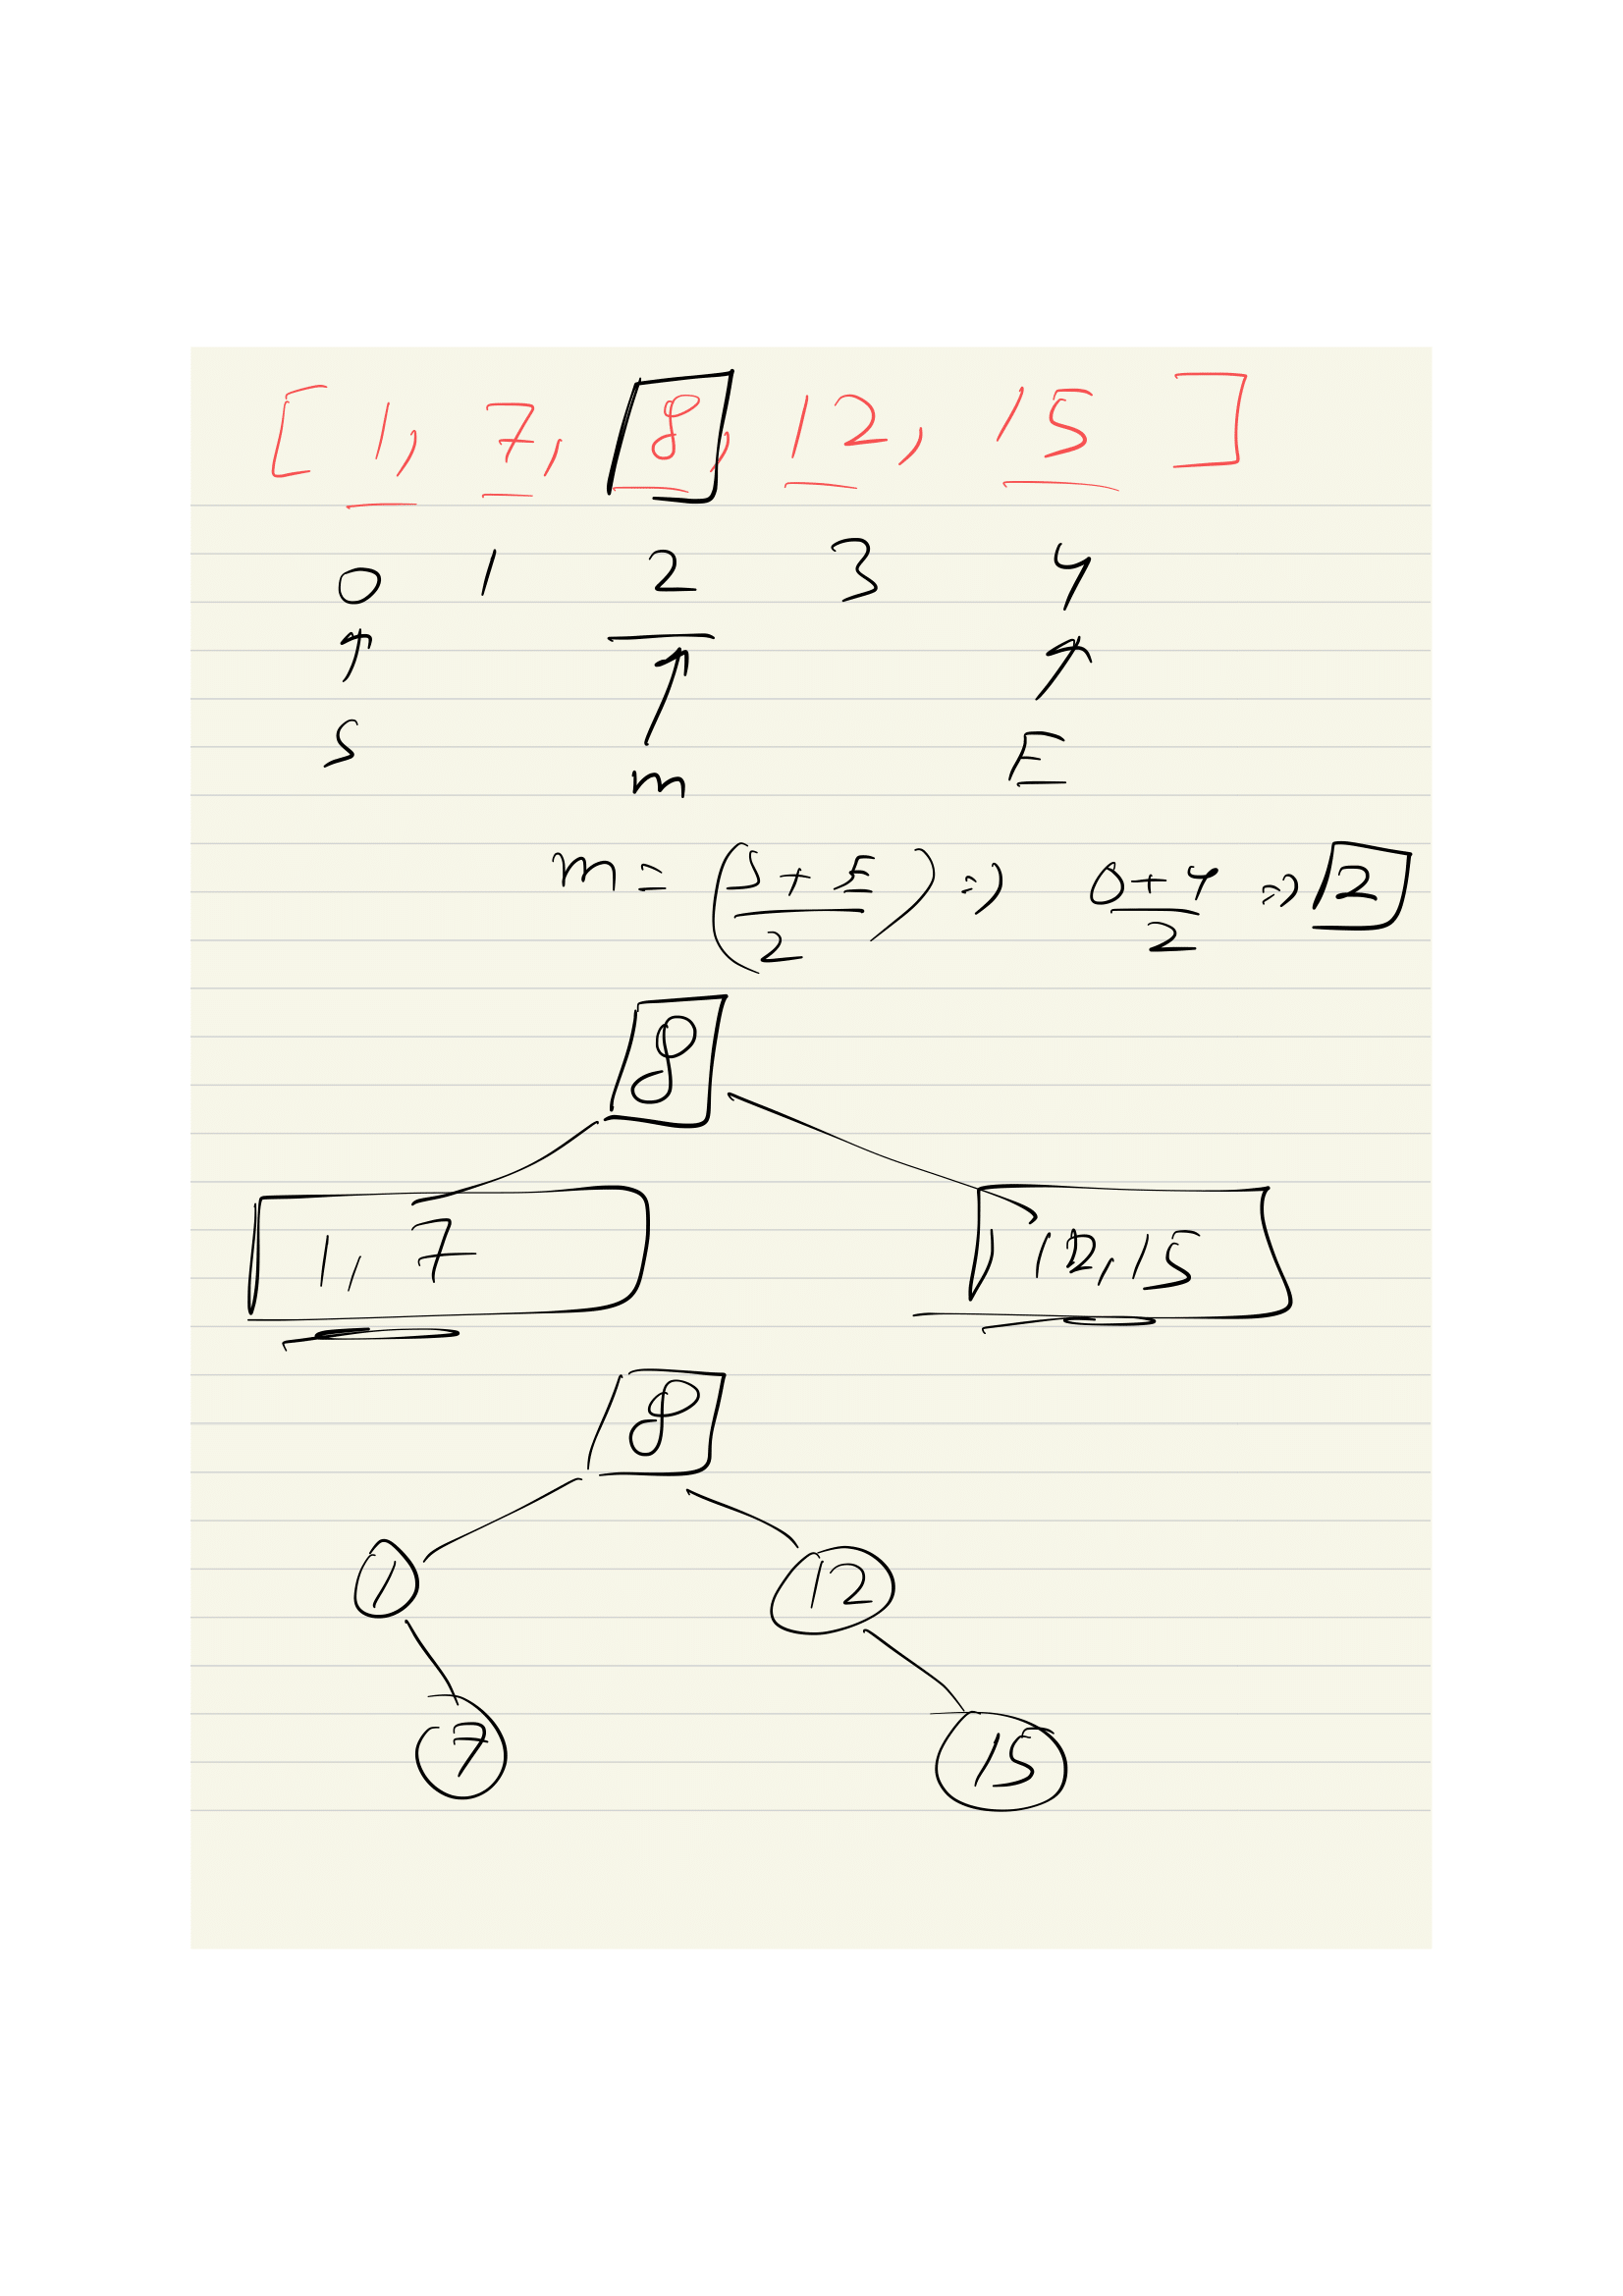 [ 1, 7, 8, 12, 15 ]
0 1 2 3 4
S m E
m = (S + E / 2) => 0 + 4 / 2 => 2
8
1, 7 12, 15
8
1 12
7 15